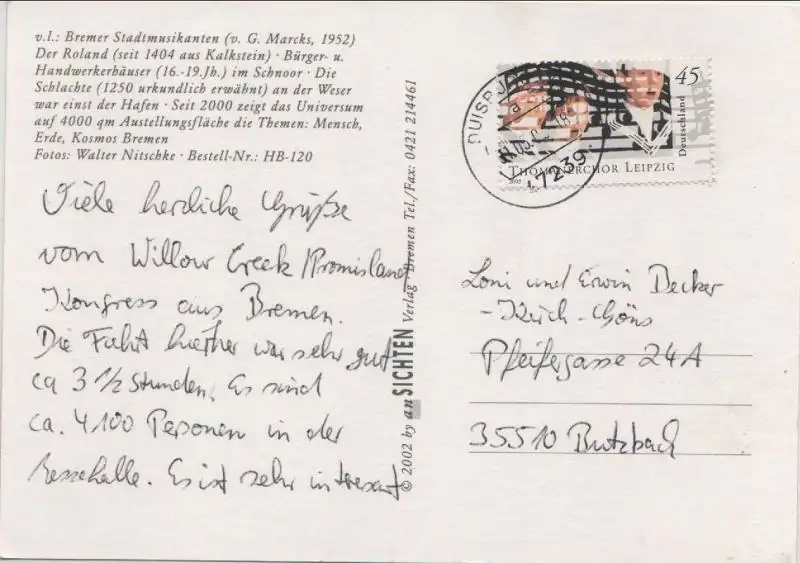 v.l.: Bremer Stadtmusikanten (v. G. Marcks, 1952)
Der Roland (seit 1404 aus Kalkstein) · Bürger- u.
Handwerkerhäuser (16.-19.Jh.) im Schnoor · Die
Schlachte (1250 urkundlich erwähnt) an der Weser
war einst der Hafen · Seit 2000 zeigt das Universum
auf 4000 qm Austellungsfläche die Themen: Mensch,
Erde, Kosmos Bremen
Fotos: Walter Nitschke · Bestell-Nr.: HB-120
Viele herzliche Grüße
vom Willow Creek/Promisland
Kongress aus Bremen.
Die Fahrt hierher war sehr gut
ca 3 ½ Stunden. Es sind
ca. 4100 Personen in der
Messehalle. Es ist sehr interesant
© 2002 by anSICHTEN Verlag · Bremen Tel./Fax: 0421 214461
DUISBURG
a
47239
45
Deutschland
THOMANERCHOR LEIPZIG
2003
Loni und Erwin Becker
-Kirch-Göns
Pfeifergasse 24A
35510 Butzbach